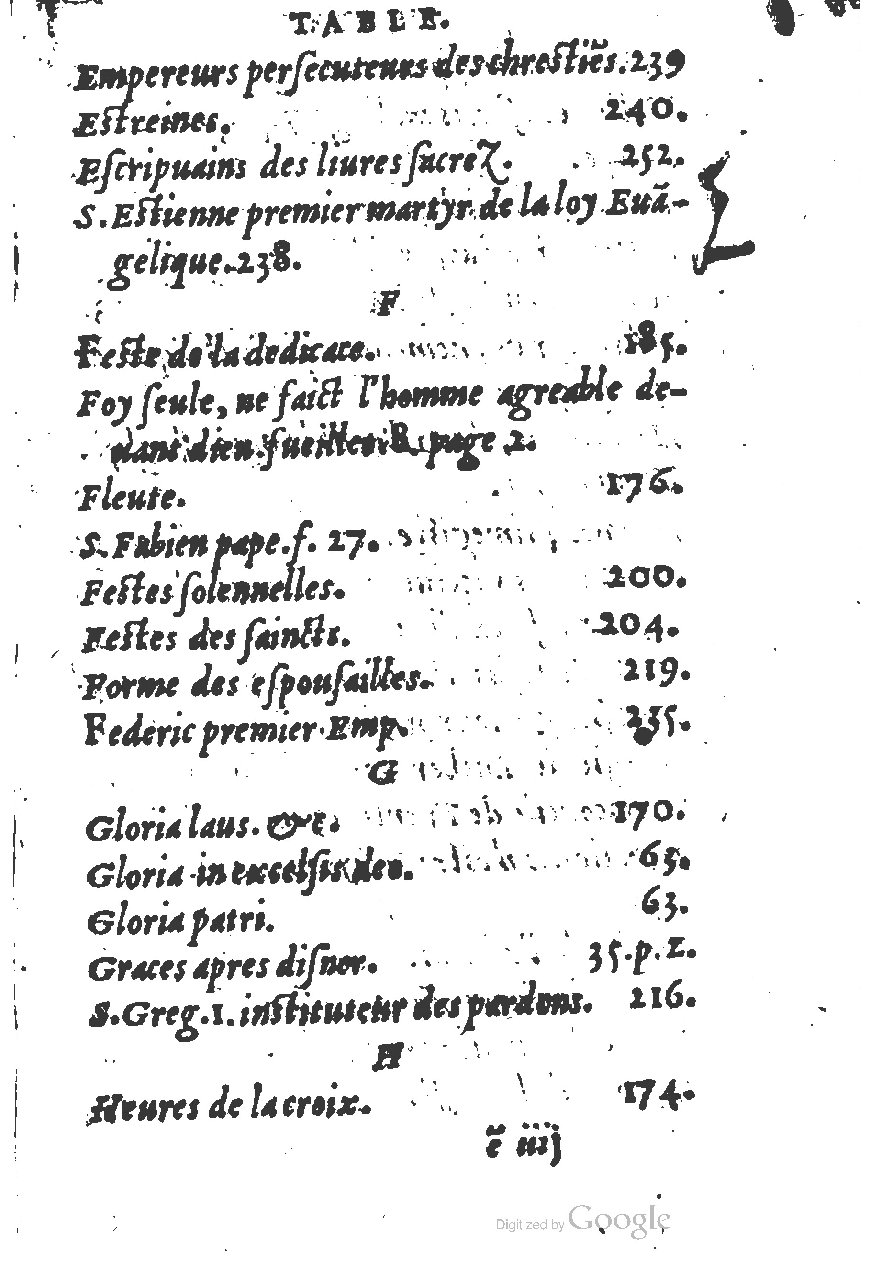 TABLE.
Empereurs perſecuteurs des chreſtiẽs. 239
Eſtreines. 240.
Eſcripuains des liures ſacrez. 252.
S. Eſtienne premier martyr de la loy Euã-
gelique. 238.
F
Feſte de la dedicace. 185.
Foy ſeule, ne faict l'homme agreable de-
uant dieu. fueillet 8. page 2.
Fleute. 176.
S. Fabien pape. f. 27.
Feſtes ſolennelles. 200.
Feſtes des ſaincts. 204.
Forme des eſpouſailles. 219.
Federic premier Emp. 235.
G
Gloria laus. &c. 170.
Gloria in excelſis deo. 63.
Gloria patri. 63.
Graces apres diſner. 35. p. 2.
S. Greg. 1. inſtituteur des pardons. 216.
H
Heures de la croix. 174.
ẽ iiij
Digitized by Google